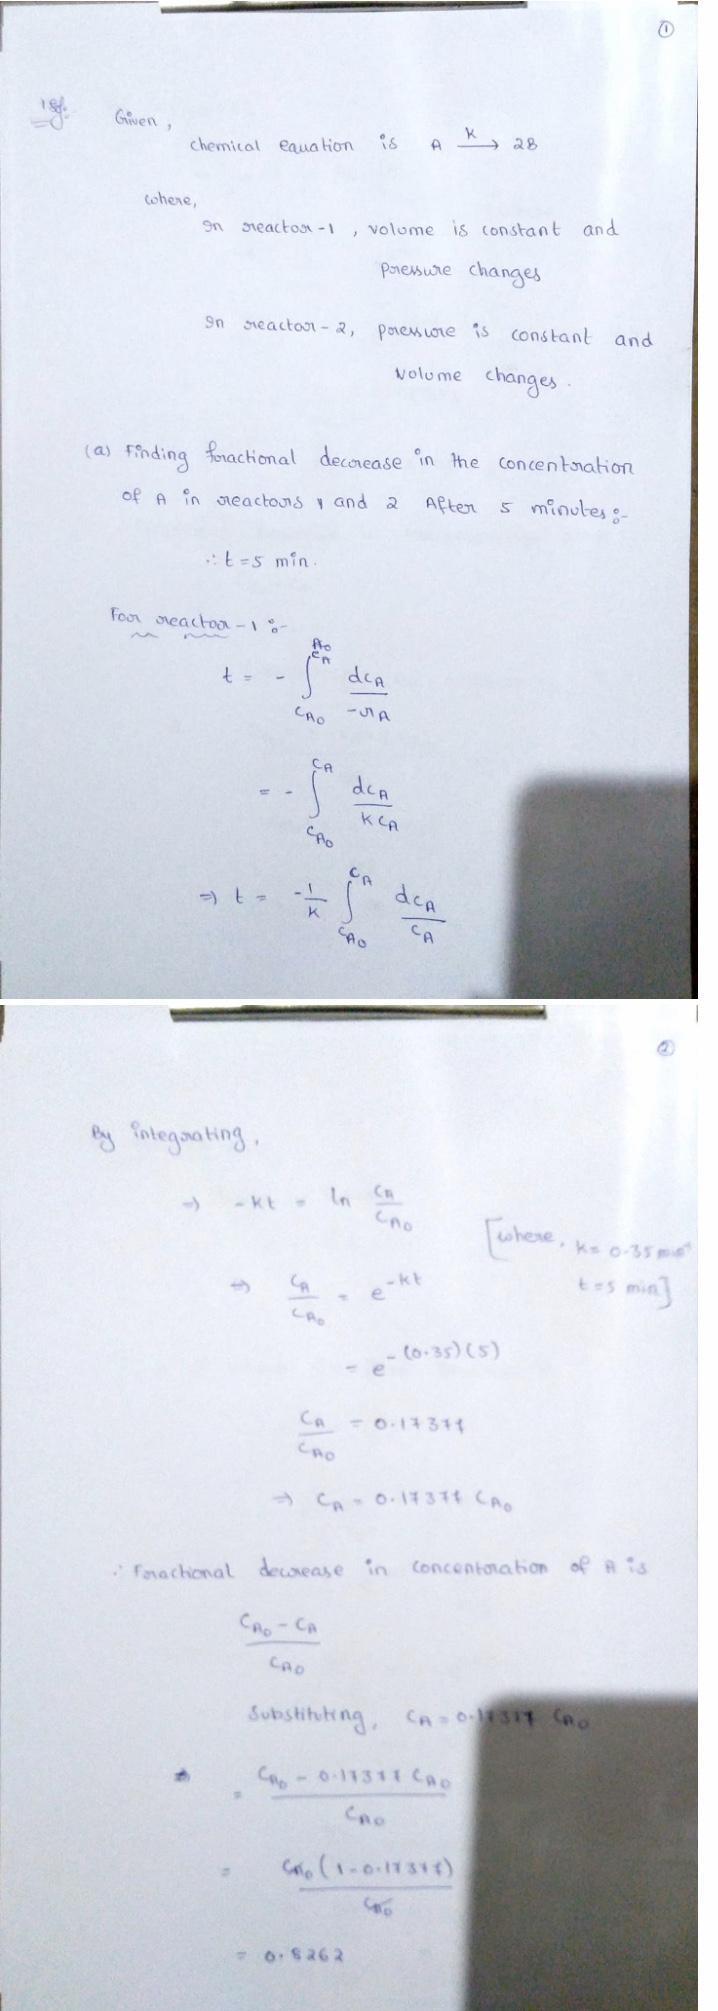 ①
1 sol.
Given,
chemical equation is A —k→ 2B
where,
In reactor-1, volume is constant and
pressure changes
In reactor-2, pressure is constant and
volume changes.
(a) Finding fractional decrease in the concentration
of A in reactors 1 and 2 After 5 minutes:-
∴ t = 5 min.
For reactor-1:-
t = - ∫_{CA0}^{CA} dCA / -rA
= - ∫_{CA0}^{CA} dCA / K CA
⇒ t = -1/K ∫_{CA0}^{CA} dCA / CA
②
By integrating,
⇒ -kt = ln CA / CA0
[where, k = 0.35 min⁻¹
⇒ CA / CA0 = e^{-kt}
t = 5 min]
= e^{-(0.35)(5)}
CA / CA0 = 0.17377
⇒ CA = 0.17377 CA0
∴ Fractional decrease in concentration of A is
CA0 - CA / CA0
Substituting, CA = 0.17377 CA0
= CA0 - 0.17377 CA0 / CA0
= CA0 (1 - 0.17377) / CA0
= 0.8262